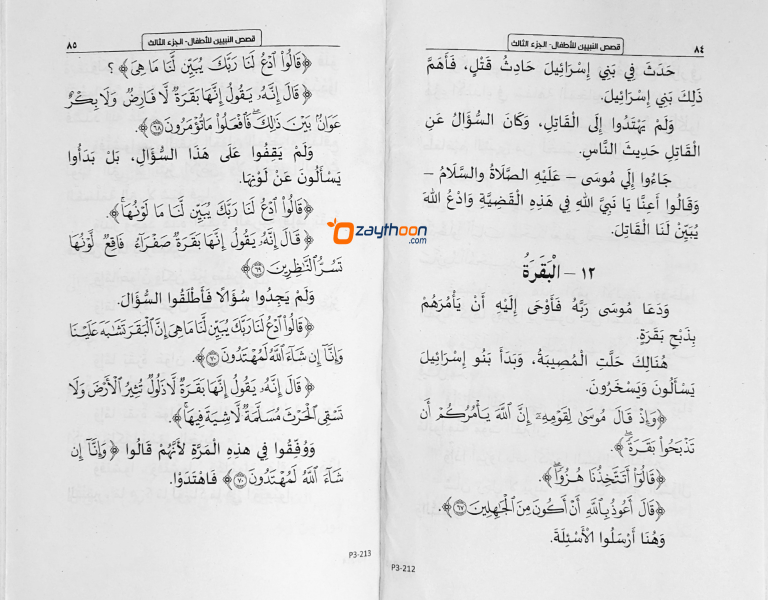 ٨٤
قصص النبيين للأطفال- الجزء الثالث
حَدَثَ فِي بَنِي إِسْرَائِيلَ حَادِثُ قَتْلٍ، فَأَهَمَّ
ذَلِكَ بَنِي إِسْرَائِيلَ.
وَلَمْ يَهْتَدُوا إِلَى الْقَاتِلِ، وَكَانَ السُّؤَالُ عَنِ
الْقَاتِلِ حَدِيثَ النَّاسِ.
جَاءُوا إِلَي مُوسَى – عَلَيْهِ الصَّلَاةُ والسَّلَامُ –
وَقَالُوا أَعِنَّا يَا نَبِيَّ اللهِ فِي هَذِهِ الْقَضِيَّةِ وَادْعُ اللهَ
يُبَيِّنْ لَنَا الْقَاتِلَ.
١٢ – الْبَقَرَةُ
وَدَعَا مُوسَى رَبَّهُ فَأَوْحَى إِلَيْهِ أَنْ يَأْمُرَهُمْ
بِذَبْحِ بَقَرَةٍ.
هُنَالِكَ حَلَّتِ الْمُصِيبَةُ، وَبَدَأَ بَنُو إِسْرَائِيلَ
يَسْأَلُونَ وَيَسْخَرُونَ.
﴿وَإِذْ قَالَ مُوسَىٰ لِقَوْمِهِۦٓ إِنَّ ٱللَّهَ يَأْمُرُكُمْ أَن
تَذْبَحُوا۟ بَقَرَةً ۖ﴾.
﴿قَالُوٓا۟ أَتَتَّخِذُنَا هُزُوًا ۖ﴾.
﴿قَالَ أَعُوذُ بِٱللَّهِ أَنْ أَكُونَ مِنَ ٱلْجَـٰهِلِينَ ٦٧﴾.
وَهُنَا أَرْسَلُوا الْأَسْئِلَةَ.
P3-212
قصص النبيين للأطفال- الجزء الثالث
٨٥
﴿قَالُوا۟ ٱدْعُ لَنَا رَبَّكَ يُبَيِّن لَّنَا مَا هِىَ﴾ ؟
﴿قَالَ إِنَّهُۥ يَقُولُ إِنَّهَا بَقَرَةٌ لَّا فَارِضٌ وَلَا بِكْرٌ
عَوَانٌۢ بَيْنَ ذَٰلِكَ ۖ فَٱفْعَلُوا۟ مَا تُؤْمَرُونَ ٦٨﴾.
وَلَمْ يَقِفُوا عَلَى هَذَا السُّؤَالِ، بَلْ بَدَأُوا
يَسْأَلُونَ عَنْ لَوْنِهَا.
﴿قَالُوا۟ ٱدْعُ لَنَا رَبَّكَ يُبَيِّن لَّنَا مَا لَوْنُهَا ۚ﴾.
﴿قَالَ إِنَّهُۥ يَقُولُ إِنَّهَا بَقَرَةٌ صَفْرَآءُ فَاقِعٌ لَّوْنُهَا
تَسُرُّ ٱلنَّـٰظِرِينَ ٦٩﴾
وَلَمْ يَجِدُوا سُؤَالًا فَأَطْلَقُوا السُّؤَالَ.
﴿قَالُوا۟ ٱدْعُ لَنَا رَبَّكَ يُبَيِّن لَّنَا مَا هِىَ إِنَّ ٱلْبَقَرَ تَشَـٰبَهَ عَلَيْنَا
وَإِنَّآ إِن شَآءَ ٱللَّهُ لَمُهْتَدُونَ ٧٠﴾.
﴿قَالَ إِنَّهُۥ يَقُولُ إِنَّهَا بَقَرَةٌ لَّا ذَلُولٌ تُثِيرُ ٱلْأَرْضَ وَلَا
تَسْقِى ٱلْحَرْثَ مُسَلَّمَةٌ لَّا شِيَةَ فِيهَا ۚ﴾.
وَوُفِّقُوا فِي هذِهِ الْمَرَّةِ لأَنَّهُمْ قَالُوا ﴿وَإِنَّآ إِن
شَآءَ ٱللَّهُ لَمُهْتَدُونَ ٧٠﴾ فَاهْتَدَوْا.
P3-213
Ozaythoon
.com